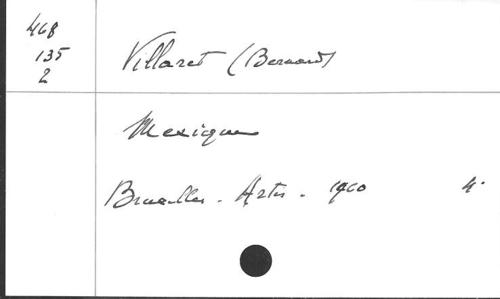 468
135
2
Villaret (Bernard)
Mexique
Bruxelles. Artis. 1960 4°